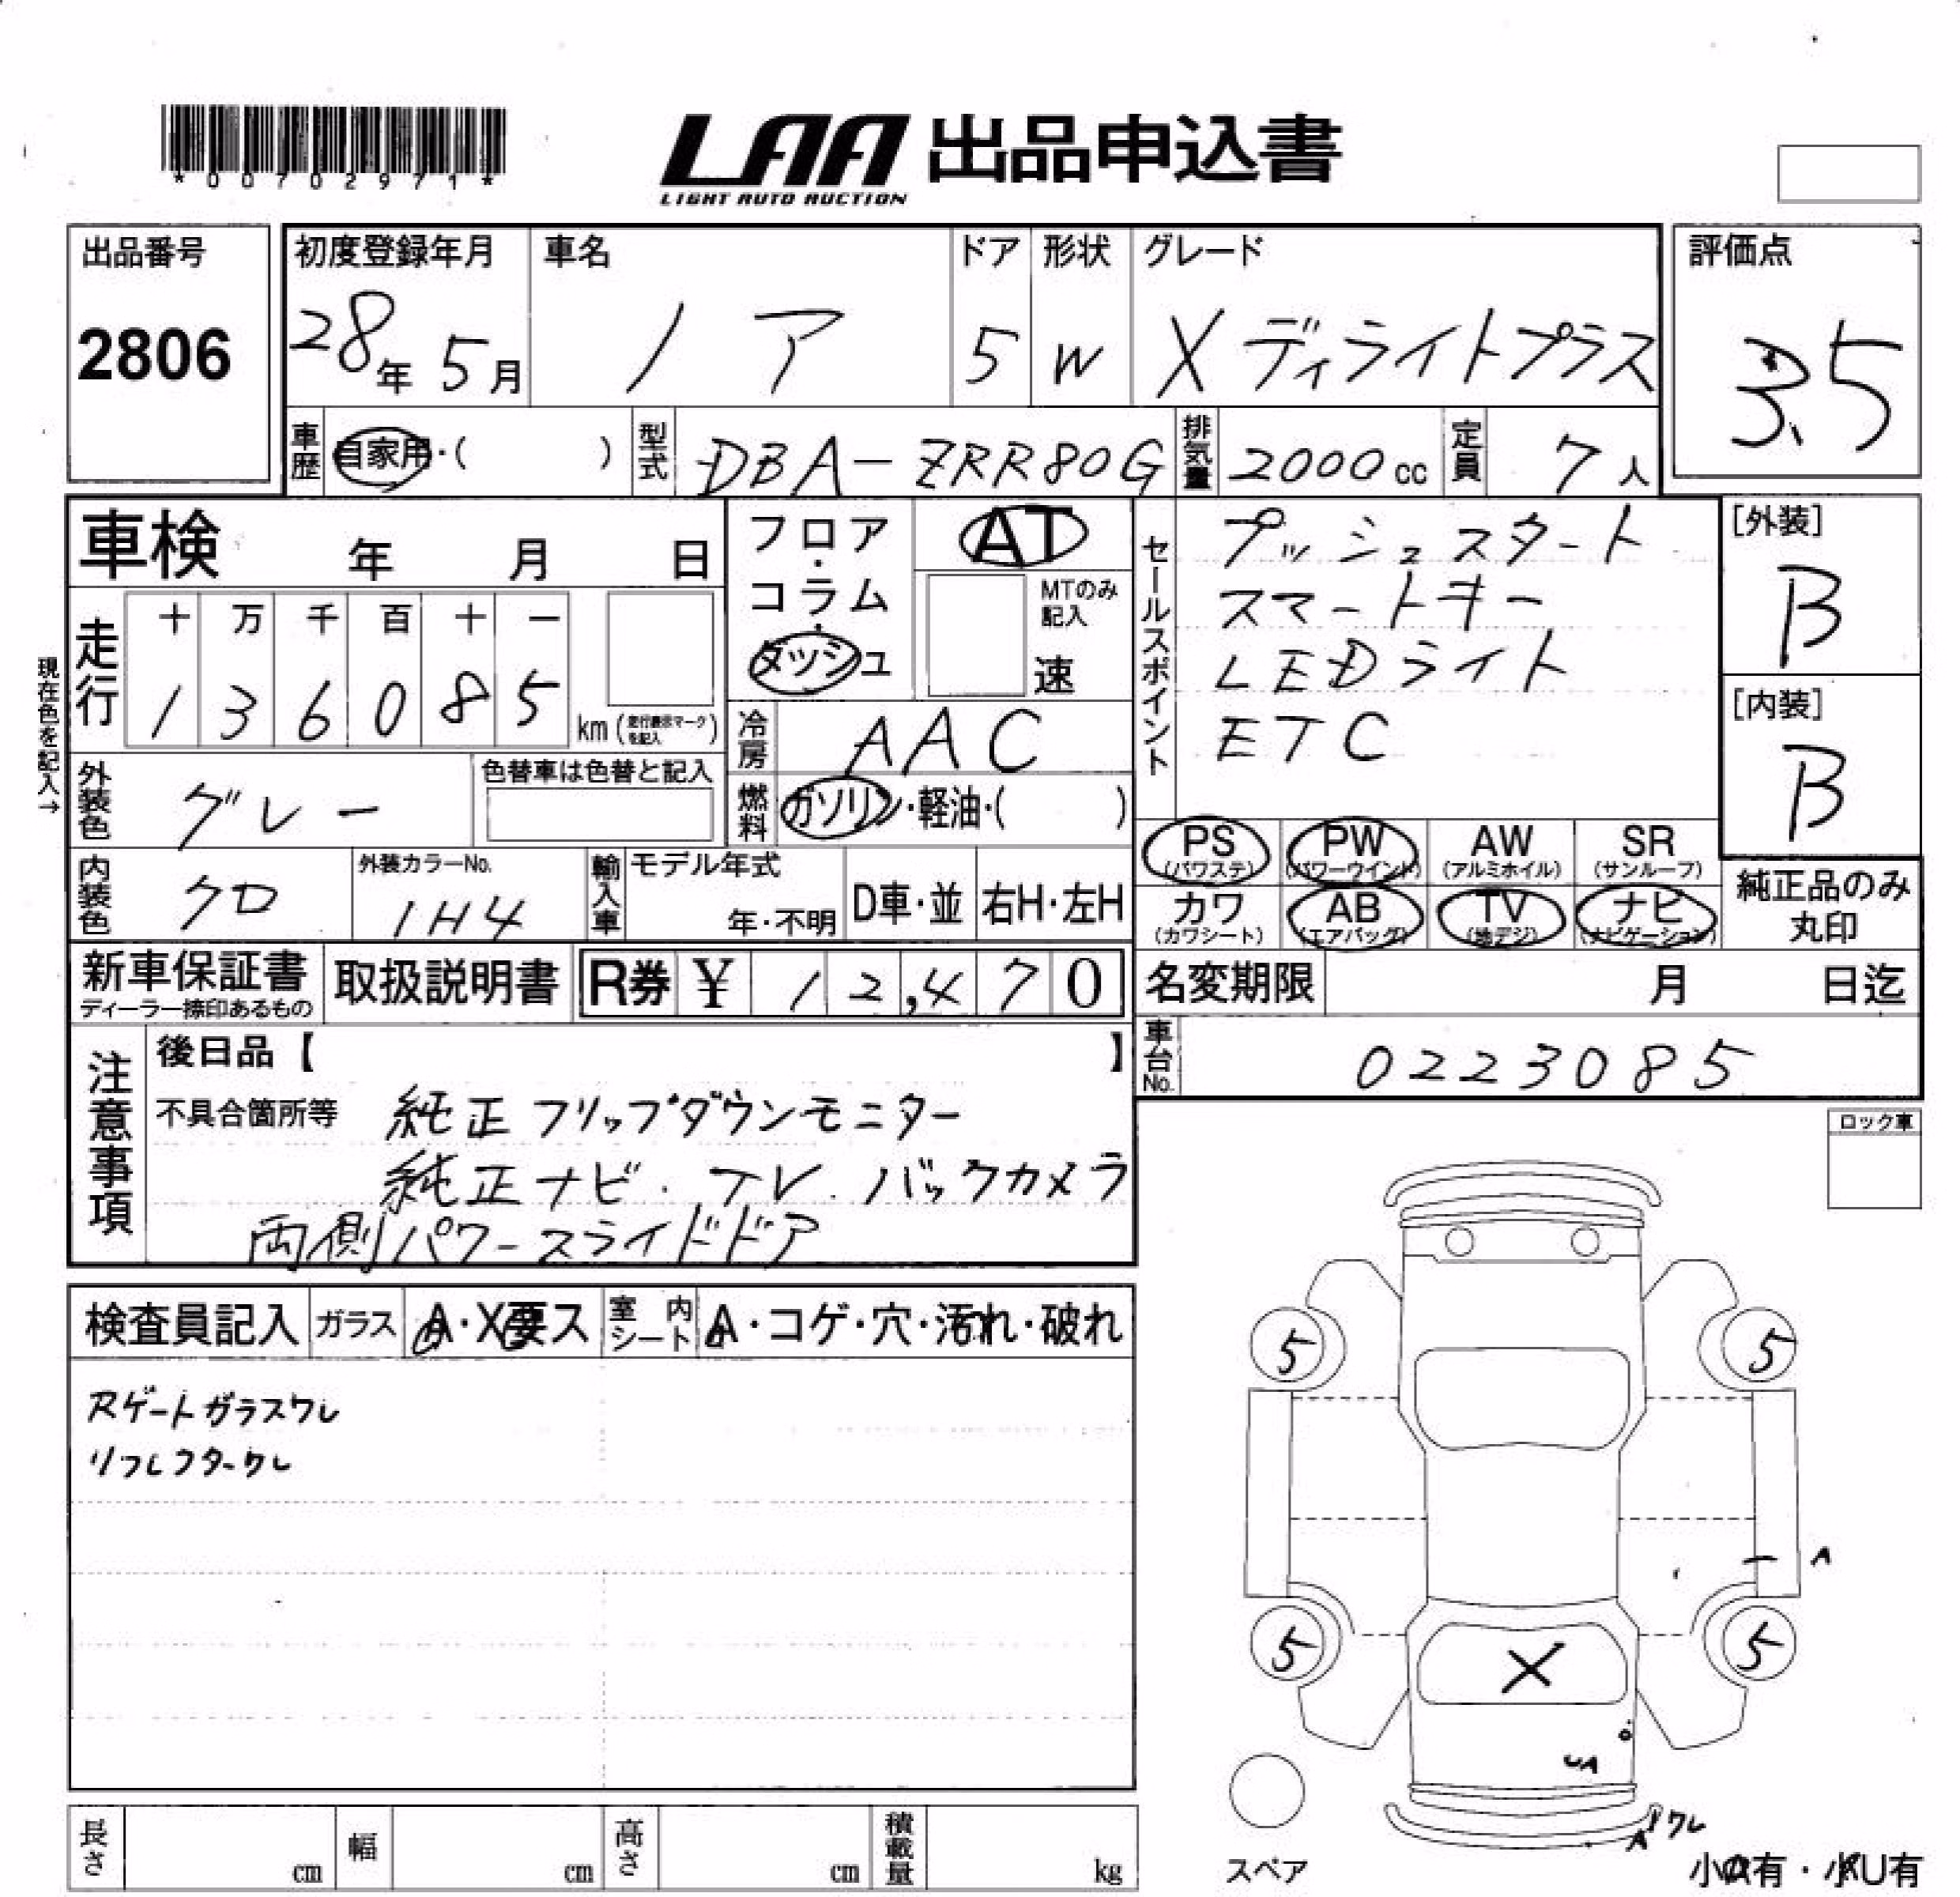 *00702971*
LAA 出品申込書
LIGHT AUTO AUCTION
出品番号
2806
初度登録年月
28年 5月
車名
ノア
ドア
5
形状
W
グレード
X ディライトプラス
評価点
3.5
車歴 自家用・( )
型式 DBA-ZRR80G
排気量 2000cc
定員 7人
車検 年 月 日
フロア・コラム・ダッシュ
AT
MTのみ記入
速
走行
十 万 千 百 十 一
1 3 6 0 8 5
km (走行表示マークを記入)
現在色を記入→
冷房 AAC
外装色 グレー
色替車は色替と記入
燃料 ガソリン・軽油・( )
内装色 クロ
外装カラーNo.
1H4
輸入車
モデル年式
年・不明
D車・並
右H・左H
セールスポイント
プッシュスタート
スマートキー
LEDライト
ETC
[外装]
B
[内装]
B
PS (パワステ)
PW (パワーウインド)
AW (アルミホイル)
SR (サンルーフ)
カワ (カワシート)
AB (エアバッグ)
TV (地デジ)
ナビ (ナビゲーション)
純正品のみ丸印
新車保証書
ディーラー捺印あるもの
取扱説明書
R券 ¥ 12,470
名変期限 月 日迄
車台No. 0223085
注意事項
後日品【 】
不具合箇所等 純正フリップダウンモニター
純正ナビ.TV.バックカメラ
両側パワースライドドア
ロック車
検査員記入
ガラス A・X要ス
室内シート A・コゲ・穴・汚れ・破れ
Rゲートガラスワレ
リフレクターワレ
5
5
A
5
X
5
A
ワレ
A
スペア
小A有・小U有
長さ cm
幅 cm
高さ cm
積載量 kg